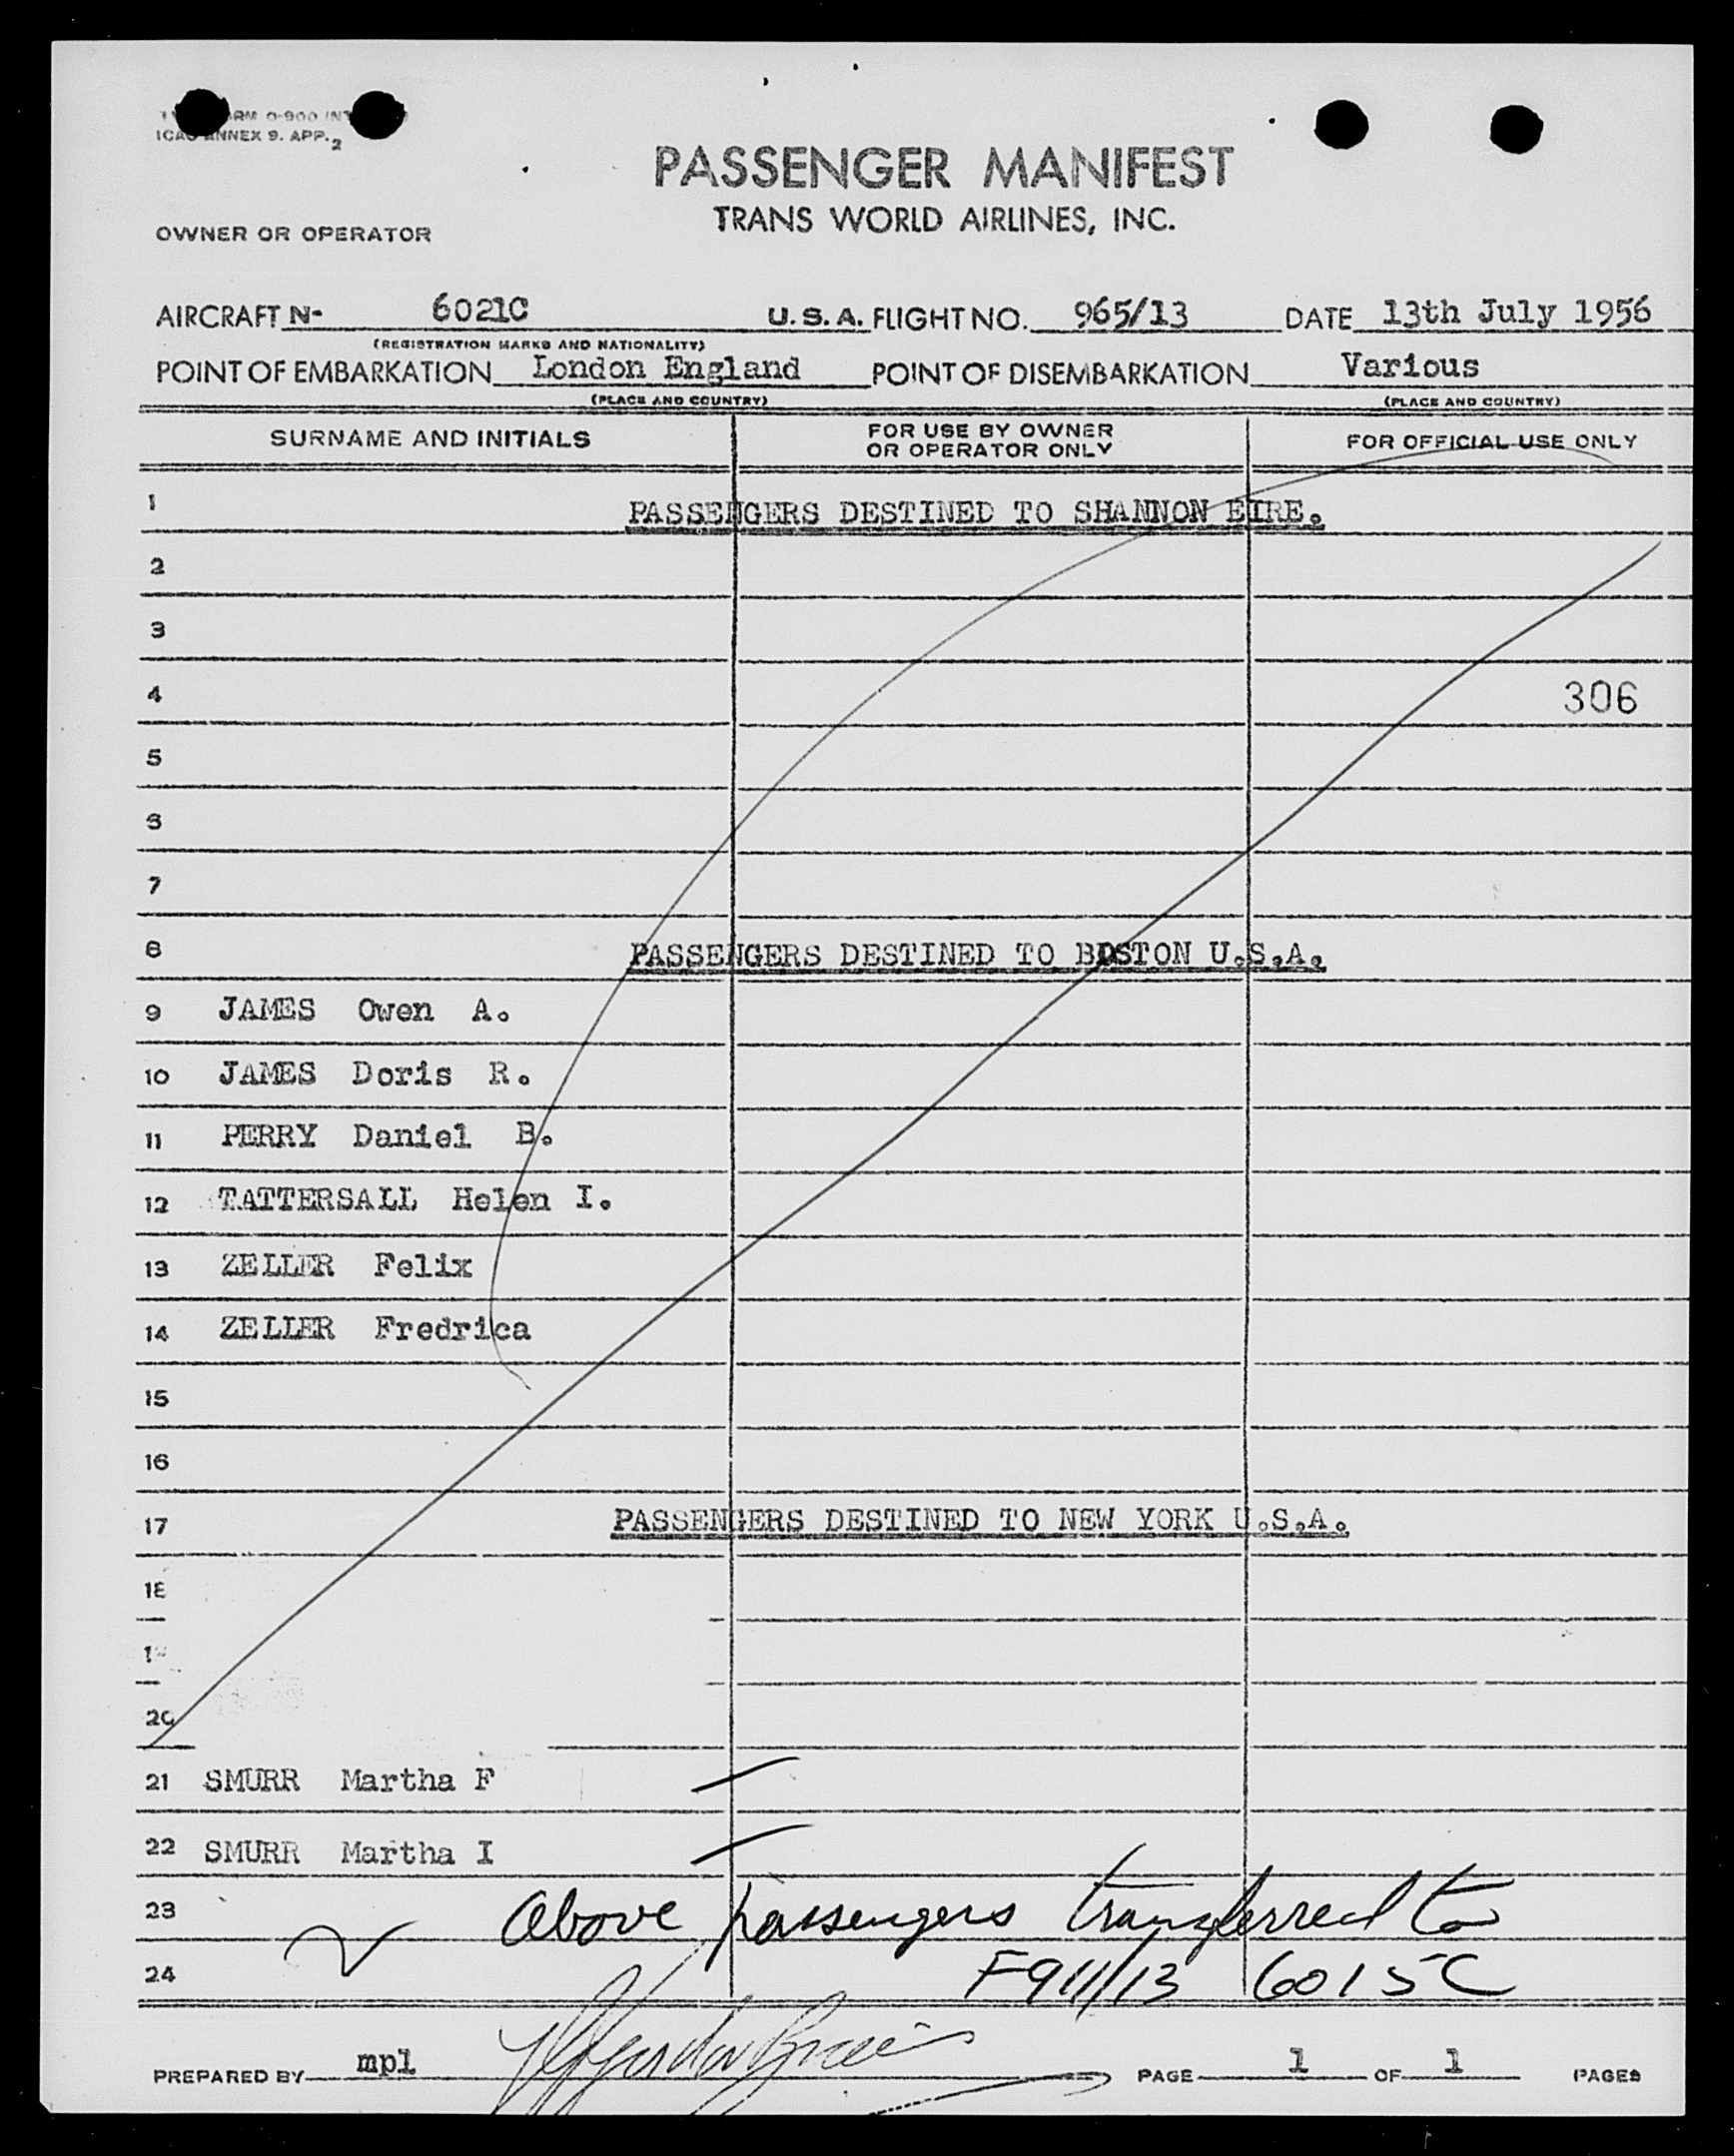 ICAO ANNEX 9. APP. 2
PASSENGER MANIFEST
TRANS WORLD AIRLINES, INC.
OWNER OR OPERATOR
AIRCRAFT N- 6021C U.S.A. FLIGHT NO. 965/13 DATE 13th July 1956
(REGISTRATION MARKS AND NATIONALITY)
POINT OF EMBARKATION London England POINT OF DISEMBARKATION Various
(PLACE AND COUNTRY) (PLACE AND COUNTRY)
SURNAME AND INITIALS FOR USE BY OWNER OR OPERATOR ONLY FOR OFFICIAL USE ONLY
1 PASSENGERS DESTINED TO SHANNON EIRE.
2
3
4 306
5
6
7
8 PASSENGERS DESTINED TO BOSTON U.S.A.
9 JAMES Owen A.
10 JAMES Doris R.
11 PERRY Daniel B.
12 TATTERSALL Helen I.
13 ZELLER Felix
14 ZELLER Fredrica
15
16
17 PASSENGERS DESTINED TO NEW YORK U.S.A.
18
19
20
21 SMURR Martha F
22 SMURR Martha I
23 above passengers transferred to
24 F911/13 6015C
PREPARED BY mpl PAGE 1 OF 1 PAGES